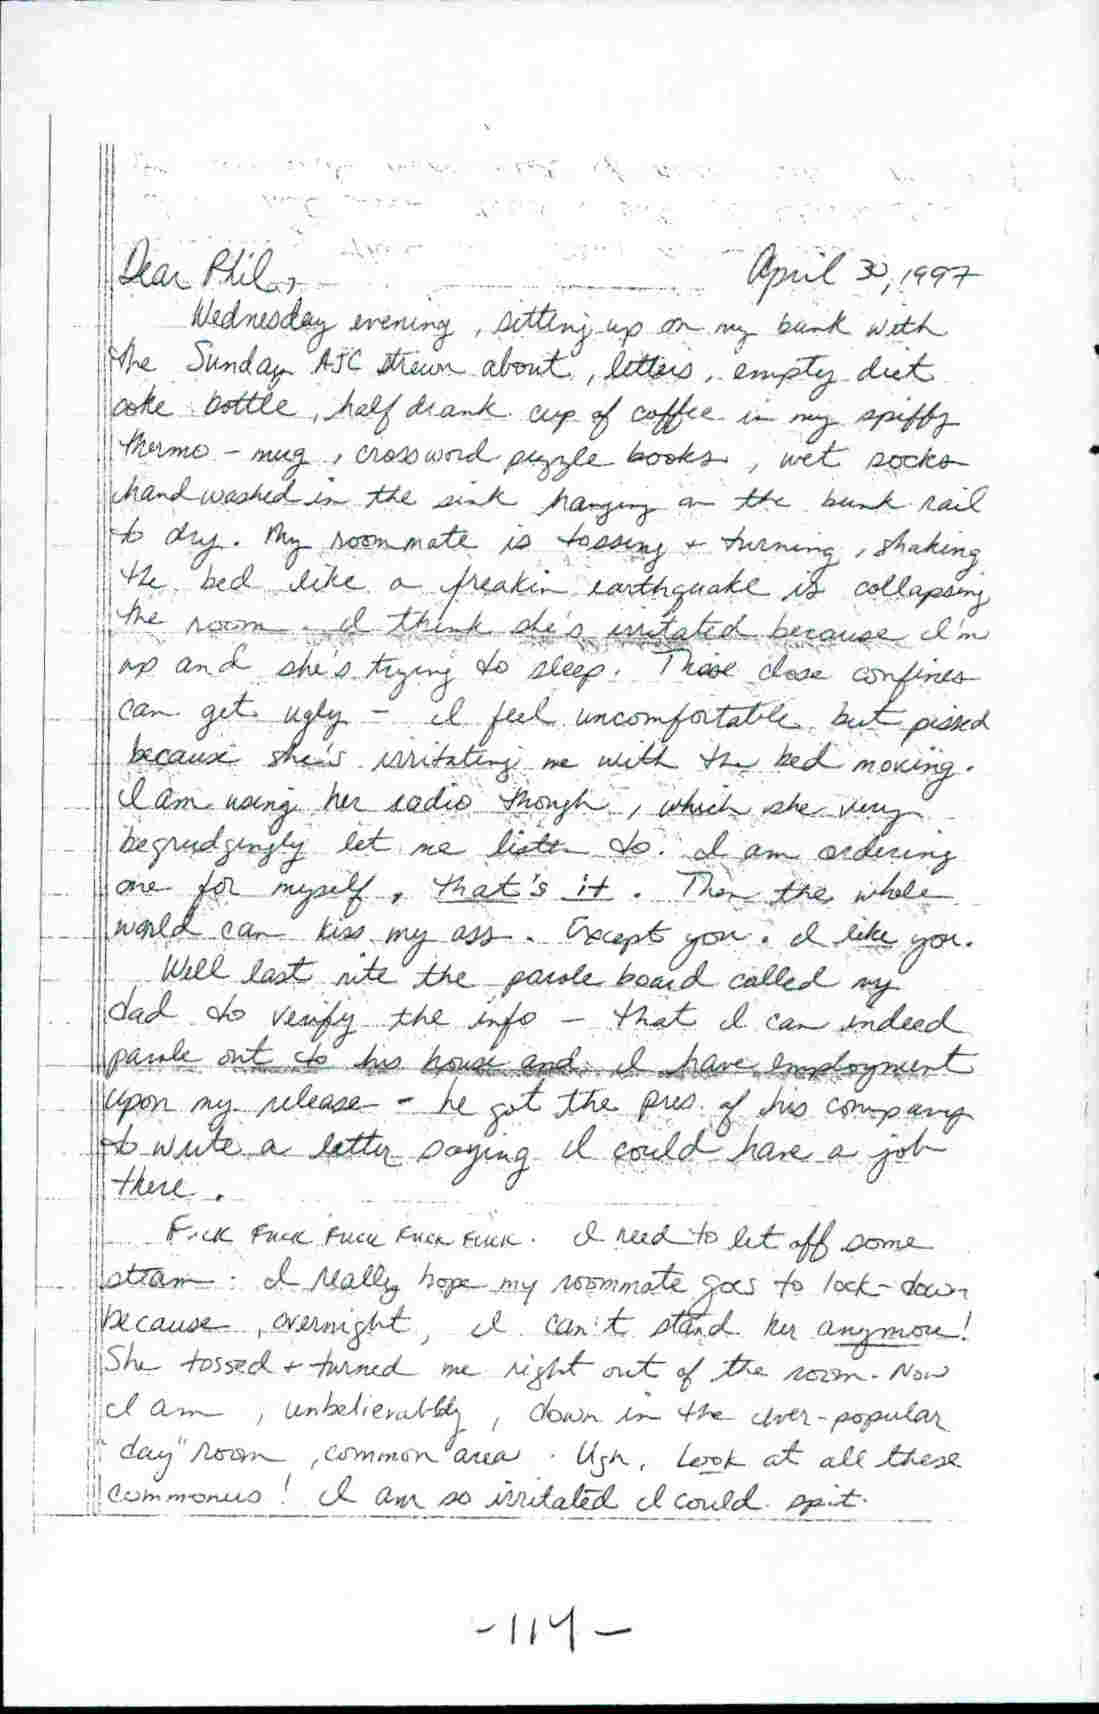 Dear Phil,
April 30, 1997
Wednesday evening, sitting up on my bunk with
the Sunday AJC strewn about, letters, empty diet
coke bottle, half drank cup of coffee in my spiffy
thermo-mug, crossword puzzle books, wet socks
hand washed in the sink hanging on the bunk rail
to dry. My roommate is tossing + turning, shaking
the bed like a freakin earthquake is collapsing
the room. I think she's irritated because I'm
up and she's trying to sleep. These close confines
can get ugly - I feel uncomfortable but pissed
because she's irritating me with the bed moving.
I am using her radio though, which she very
begrudgingly let me listen to. I am ordering
one for myself, that's it. Then the whole
world can kiss my ass. Except you. I like you.
Well last nite the parole board called my
dad to verify the info - that I can indeed
parole out to his house and I have employment
upon my release - he got the pres. of his company
to write a letter saying I could have a job
there.
Fuck Fuck Fuck Fuck Fuck. I need to let off some
steam. I really hope my roommate goes to lock-down
because, overnight, I can't stand her anymore!
She tossed + turned me right out of the room. Now
I am, unbelievably, down in the ever-popular
"day" room, common area. Ugh. Look at all these
commoners! I am so irritated I could spit.
-114-